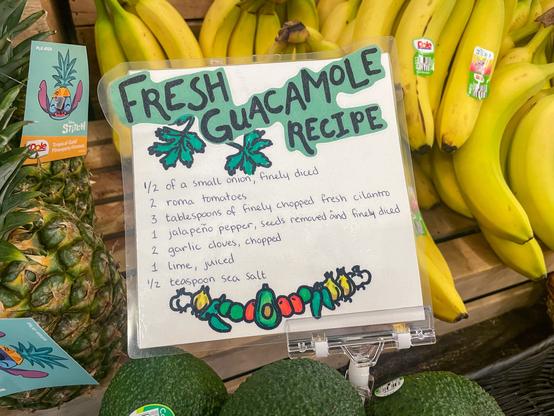 FRESH
GUACAMOLE
RECIPE
1/2 of a small onion, finely diced
2 roma tomatoes
3 tablespoons of finely chopped fresh cilantro
1 jalapeño pepper, seeds removed and finely diced
2 garlic cloves, chopped
1 lime, juiced
1/2 teaspoon sea salt
STITCH
Dole
Dole